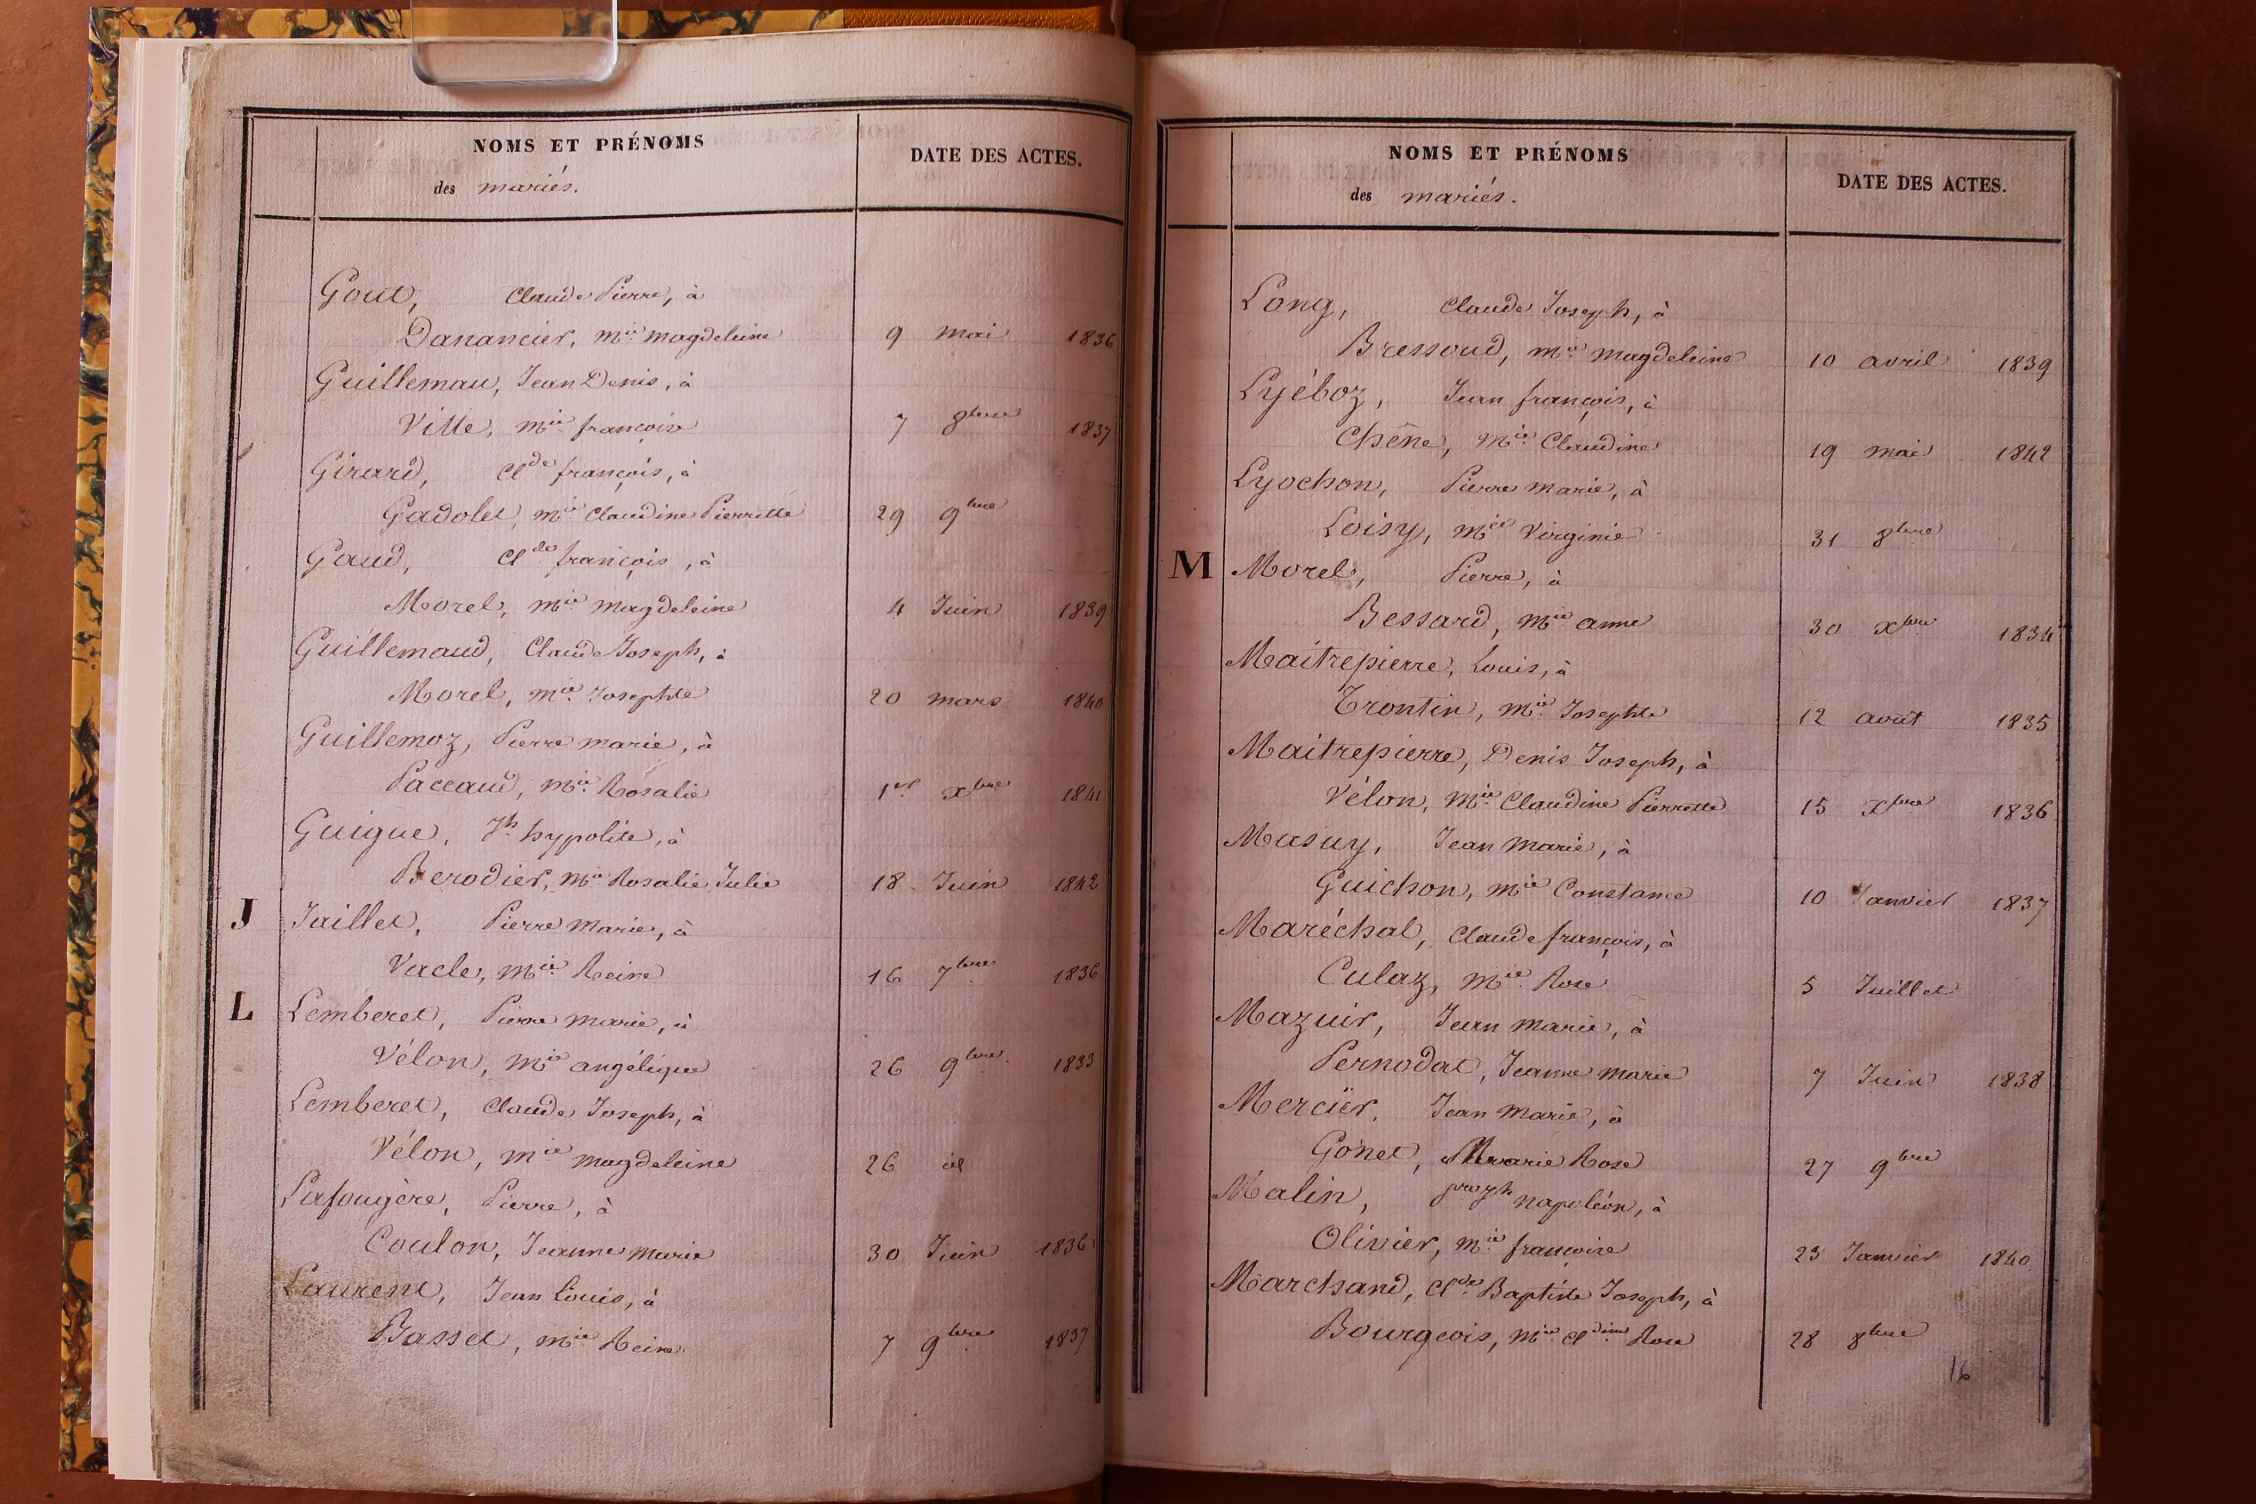 NOMS ET PRÉNOMS
des mariés.
DATE DES ACTES.
Gout, Claude Pierre, à
Danancier, Mie magdeleine 9 mai 1836
Guillemau, Jean Denis, à
Ville, Mie françoise 7 8bre 1837
Girard, Clde françois, à
Gadolet, Mie Claudine Pierrette 29 9bre
Gaud, Clde françois, à
Morel, Mie magdeleine 4 Juin 1839
Guillemaud, Claude Joseph, à
Morel, Mie Josephte 20 mars 1840
Guillemoz, Pierre marie, à
Paccaud, Mie Rosalie 1er Xbre 1841
Guigue, Jh hypolite, à
Berodier, Mie Rosalie Julie 18 Juin 1842
J Jaillet, Pierre marie, à
Vacle, Mie Reine 16 7bre 1836
L Lemberet, Pierre marie, à
Vélon, Mie angélique 26 9bre 1833
Lemberet, Claude Joseph, à
Vélon, Mie magdeleine 26 id
Lafougère, Pierre, à
Coulon, Jeanne marie 30 Juin 1836
Laurent, Jean Louis, à
Basset, Mie Reine 7 9bre 1837
NOMS ET PRÉNOMS
des mariés.
DATE DES ACTES.
Long, Claude Joseph, à
Bressoud, Mie magdeleine 10 avril 1839
Lyéboz, Jean françois, à
Chêne, Mie Claudine 19 mai 1842
Lyochon, Pierre marie, à
Loisy, Mie Virginie 31 8bre
M Morel, Pierre, à
Bessard, Mie anne 30 Xbre 1834
Maitrepierre, Louis, à
Trontin, Mie Josephte 12 août 1835
Maitrepierre, Denis Joseph, à
Vélon, Mie Claudine Pierrette 15 Xbre 1836
Masuy, Jean Marie, à
Guichon, Mie Constance 10 Janvier 1837
Maréchal, Claude françois, à
Culaz, Mie Rose 5 Juillet
Mazuir, Jean marie, à
Pernodat, Jeanne marie 7 Juin 1838
Mercier, Jean Marie, à
Gonet, Marie Rose 27 9bre
Malin, napoléon, à
Olivier, Mie françoise 23 Janvier 1840
Marchand, Clde Baptiste Joseph, à
Bourgeois, Mie Cldine Rose 28 8bre
16